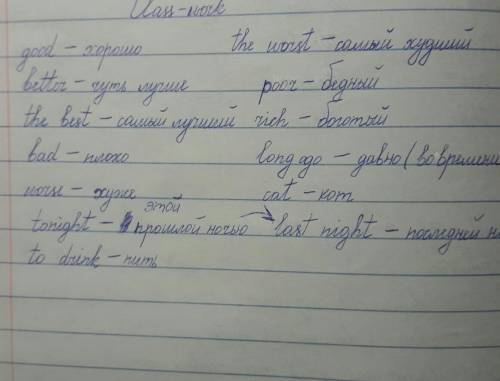 Class-work
good – хорошо the worst – самый худший
better – чуть лучше poor – бедный
the best – самый лучший rich – боготый
bad – плохо long ago – давно (во времени
worse – хуже cat – кот
этой
tonight – прошлой ночью last night – последней н
to drink – пить